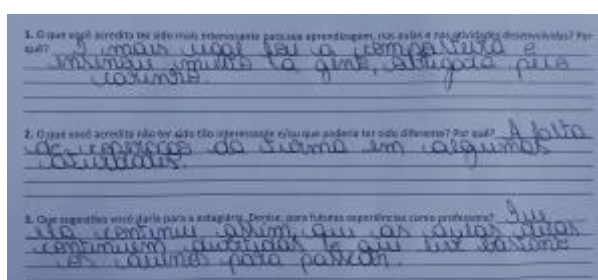 1. O que você acredita ter sido mais interessante para sua aprendizagem, nas aulas e nas atividades desenvolvidas? Por
quê? O mais legal foi a compostura e
ensinou muito a gente, obrigada pelo
carinho.
2. O que você acredita não ter sido tão interessante e/ou que poderia ter sido diferente? Por quê? A falta
de cooperação da turma em algumas
atividades.
3. Que sugestões você daria para a estagiária, Denise, para futuras experiências como professora? Que
ela continue assim, que as aulas delas
continuem divertidas
os alunos para